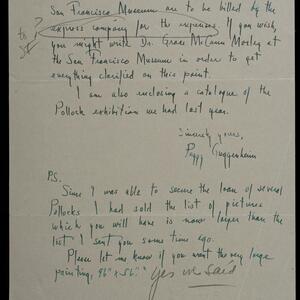 San Francisco Museum are to be billed by the
express company for the expenses. If you wish,
you might write Dr. Grace McCann Morley at
the San Francisco Museum in order to get
everything clarified on this point.
I am also enclosing a catalogue of the
Pollock exhibition we had last year.
Sincerely yours,
Peggy Guggenheim
P.S.
Since I was able to secure the loan of several
Pollocks I had sold the list of pictures
which you will have is now larger than the
list I sent you some time ago.
Please let me know if you want the very large
painting, 96" x 56"."
yes we said